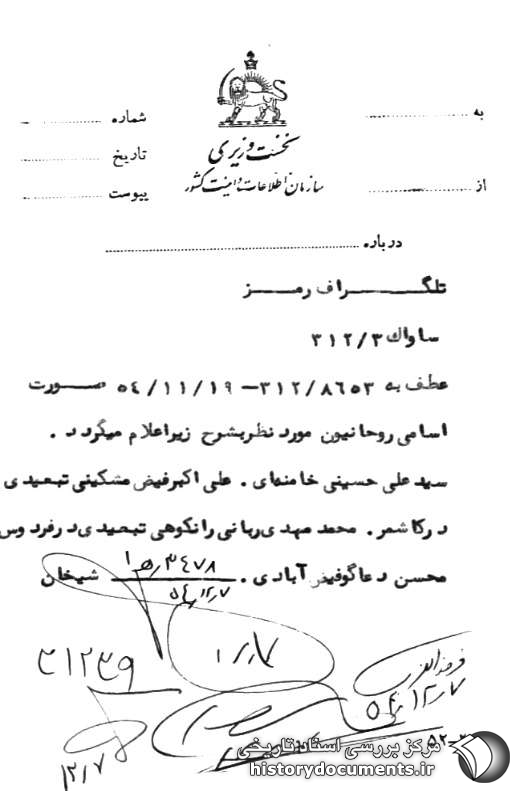 به
شماره
نخست وزیری
تاریخ
سازمان اطلاعات و امنیت کشور
از
پیوست
درباره
تلگراف رمز
ساواك ۳۱۲/۳
عطف به ۳۱۲/۸٦٥۳ – ٥٤/۱۱/۱۹ صورت
اسامی روحانیون مورد نظر بشرح زیر اعلام میگردد .
سید علی حسینی خامنه‌ای . علی اکبر فیض مشکینی تبعیدی
در کاشمر . محمد مهدی ربانی رانکوهی تبعیدی در فردوس
محسن دعاگو فیض آبادی . شیخان
۳٤۷۸/ﻫ ۱
٥٤/۱۲/۷
۳۱۲۳۹
٥٤/۱۲/۷
۱۲/۷
مرکز بررسی اسناد تاریخی
historydocuments.ir